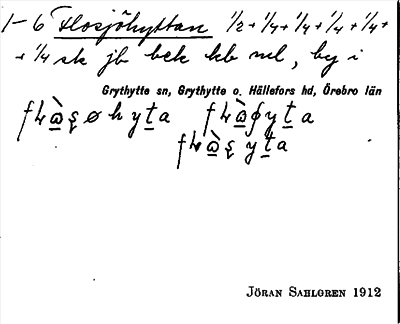 1-6 Flosjöhyttan 1/2 + 1/4 + 1/4 + 1/4 + 1/4 +
+ 1/4 sk jb bek kb ml, by i
Grythytte sn, Grythytte o. Hällefors hd, Örebro län
JÖRAN SAHLGREN 1912